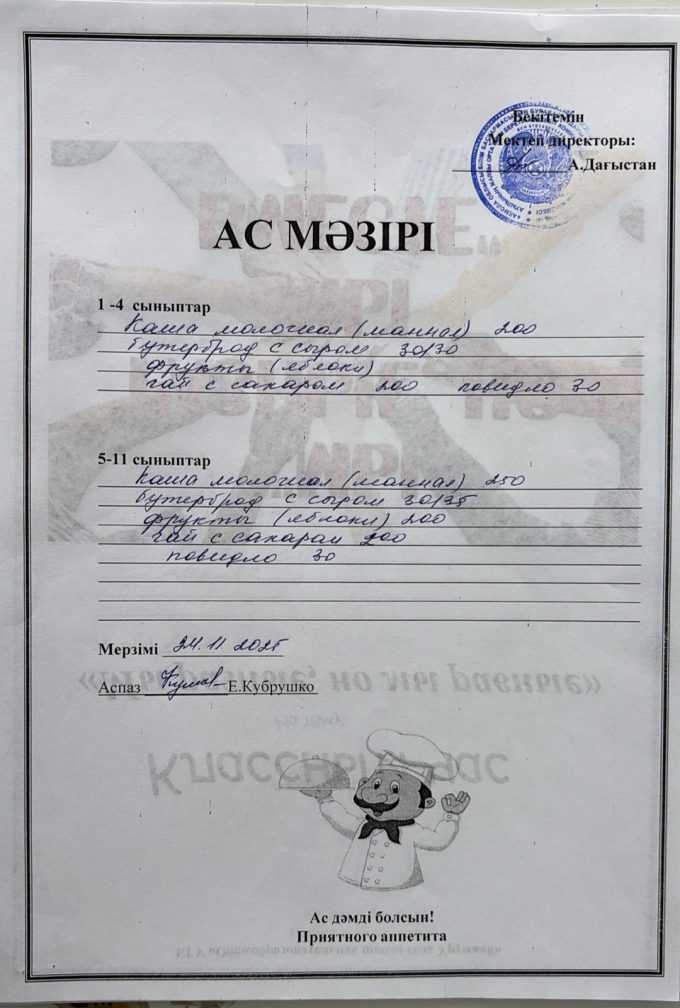 Бекітемін
Мектеп директоры:
А.Дағыстан
АС МӘЗІРІ
1 -4 сыныптар
Каша молочная (манная) 200
бутерброд с сыром 30/30
фрукты (яблоки)
чай с сахаром 200 повидло 30
5-11 сыныптар
Каша молочная (манная) 250
бутерброд с сыром 30/35
фрукты (яблоки) 200
чай с сахаром 200
повидло 30
Мерзімі 24.11.2025
Аспаз Е.Кубрушко
«Мы разные, но мы равные»
Классный час
Ас дәмді болсын!
Приятного аппетита